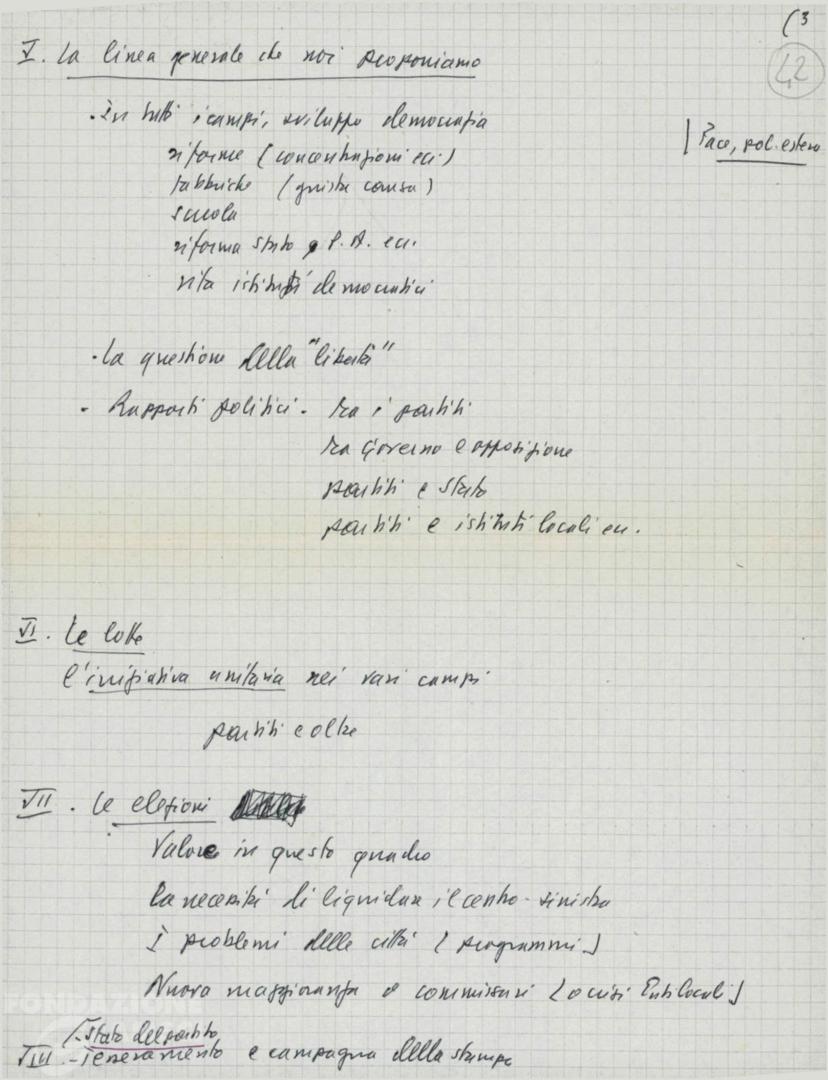 (3
42
V. La linea generale che noi proponiamo
. In tutti i campi, sviluppo democrazia
| Pace, pol. estera
riforme (concentrazioni ecc)
fabbriche (giusta causa)
scuola
riforma stato e P. A. ecc.
vita istituti democratici
. La questione della "libertà"
. Rapporti politici. tra i partiti
tra Governo e opposizione
partiti e stato
partiti e istituti locali ecc.
VI. Le lotte
l'iniziativa unitaria nei vari campi
partiti e oltre
VII. Le elezioni
Valore in questo quadro
La necessità di liquidare il centro-sinistra
I problemi delle città (programmi)
Nuova maggioranza o commissari (o crisi Enti locali)
Stato del partito
VIII - Tesseramento e campagna della stampa
FONDAZIONE